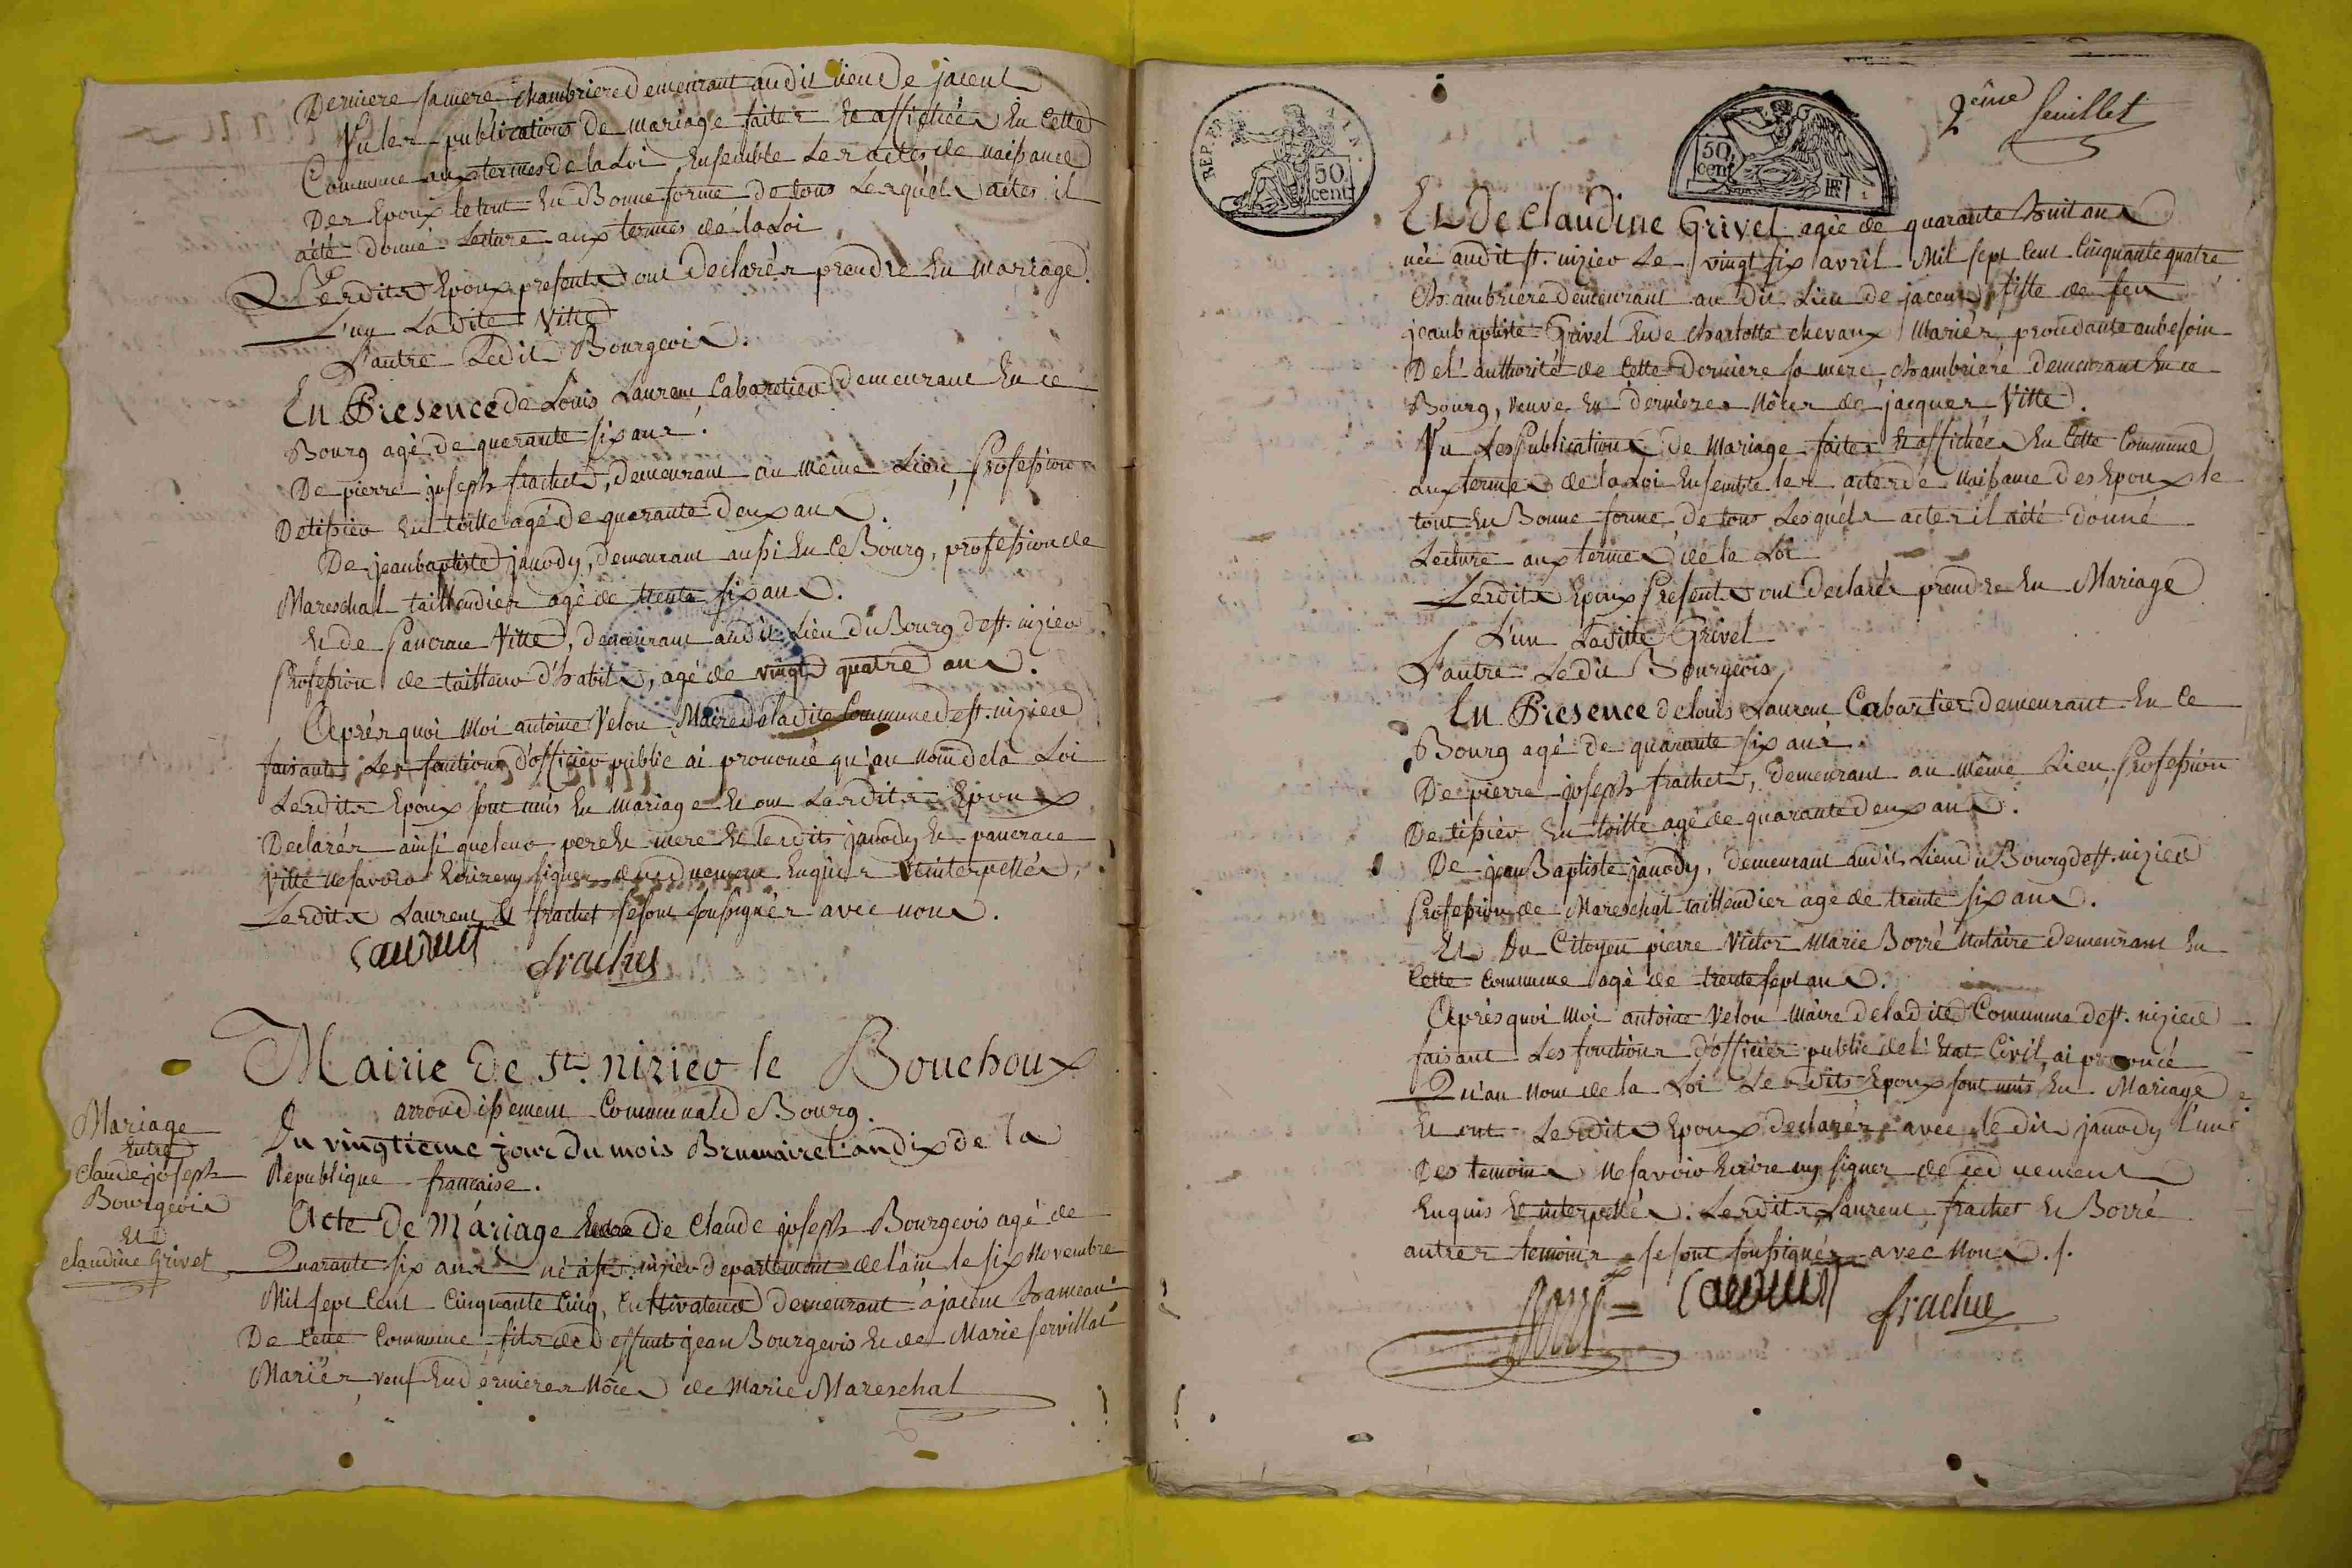 Derniere sa mere chambriere demeurant audit lieu de jaceul
Vu les publications de mariage faites Et affichées En Cette
Commune aux termes de la Loi Ensemble Les actes de naissance
Des Epoux le tout En Bonne forme de tous Lesquels actes il
aété donné Lecture aux termes de la Loi
Lesdits Epoux presents ont Declarés prendre En mariage
L'un Ladite Vitte
L'autre Ledit Bourgeois.
En Presence de Louis Laurent Cabaretier demeurant En ce
Bourg agé de quarante six ans.
De pierre joseph frachet, demeurant au même Lieu, Profession
De tissier En toille agé de quarante deux ans.
De jean baptiste janody, demeurant aussi En Ce Bourg, profession de
Mareschal taillendier agé de trente six ans.
Et de Pancrace Vitte, demeurant audit Lieu du Bourg de st. nizier
Profession de tailleur d'habits, agé de vingt quatre ans.
Après quoi Moi antoine Velon Maire de la dite Commune de st. nizier
faisant Les fonctions d'officier public ai prononcé qu'au nom de la Loi
Lesdits Epoux sont unis En Mariage Et ont Lesdits Epoux
Declarés ainsi que leur pere Et mere Et lesdits janody Et pancrace
Vitte ne savoir Ecrire ny signer de ce duement Enquis Et interpellés,
Lesdits Laurent Et frachet se sont soussignés avec nous.
Laurent frachet
Mairie de St. nizier le Bouchoux
arrondissement Communal de Bourg.
Mariage
Entre
Claude joseph
Bourgeois
Et
Claudine Grivel
Du vingtieme jour du mois Brumaire l'an dix de la
Republique francaise.
Acte de Mariage de Claude joseph Bourgeois agé de
Quarante six ans né à st. nizier departement de l'ain le six Novembre
Mil sept Cent Cinquante Cinq, Cultivateur demeurant à jaceul hameau
De Cette Commune fils de deffunt jean Bourgeois Et de Marie servillat
Mariés, veuf En dernieres Nôces de Marie Mareschal
2ême feuillet
REP. FRA. AIN.
50
cent
50
cent
RF
Et De Claudine Grivel agée de quarante huit ans
née audit st. nizier Le vingt six avril Mil sept Cent Cinquante quatre
Chambriere demeurant au dit Lieu de jaceul, fille de feu
jean baptiste Grivel Et de Charlotte chevaux Mariés, procedante au besoin
De l'authorité de Cette Derniere sa mere, Chambriere demeurant En ce
Bourg, veuve En Dernieres Nôces de jacques Vitte.
Vu Les Publications de Mariage faites Et affichées En Cette Commune
aux termes de la Loi Ensemble les actes de Naissance des Epoux le
tout En Bonne forme de tous Lesquels actes il aété donné
Lecture aux termes de la Loi
Lesdits Epoux Presents ont declarés prendre En Mariage
L'un Laditte Grivel
L'autre Ledit Bourgeois
En Presence de louis Laurent Cabartier demeurant En Ce
Bourg agé de quarante six ans.
De pierre joseph frachet, demeurant au même Lieu, Profession
De tissier En toille agé de quarante deux ans.
De jean Baptiste janody, demeurant audit Lieu du Bourg de st. nizier
Profession de Mareschal taillendier agé de trente six ans.
Et Du Citoyen pierre Victor Marie Borré Notaire demeurant En
Cette Commune agé de trente sept ans.
Après quoi Moi antoine Velon Maire de ladite Commune de st. nizier
faisant Les fonctions d'officier public de l'Etat Civil, ai prononcé
Qu'au Nom de la Loi Lesdits Epoux sont unis En Mariage
Et ont Lesdits Epoux declarés avec ledit janody l'un
Des temoins Ne savoir Ecrire ny signer de ce duement
Enquis Et interpellés. Lesdits Laurent, frachet Et Borré
autres temoins se sont soussignés avec Nous.
Laurent frachet